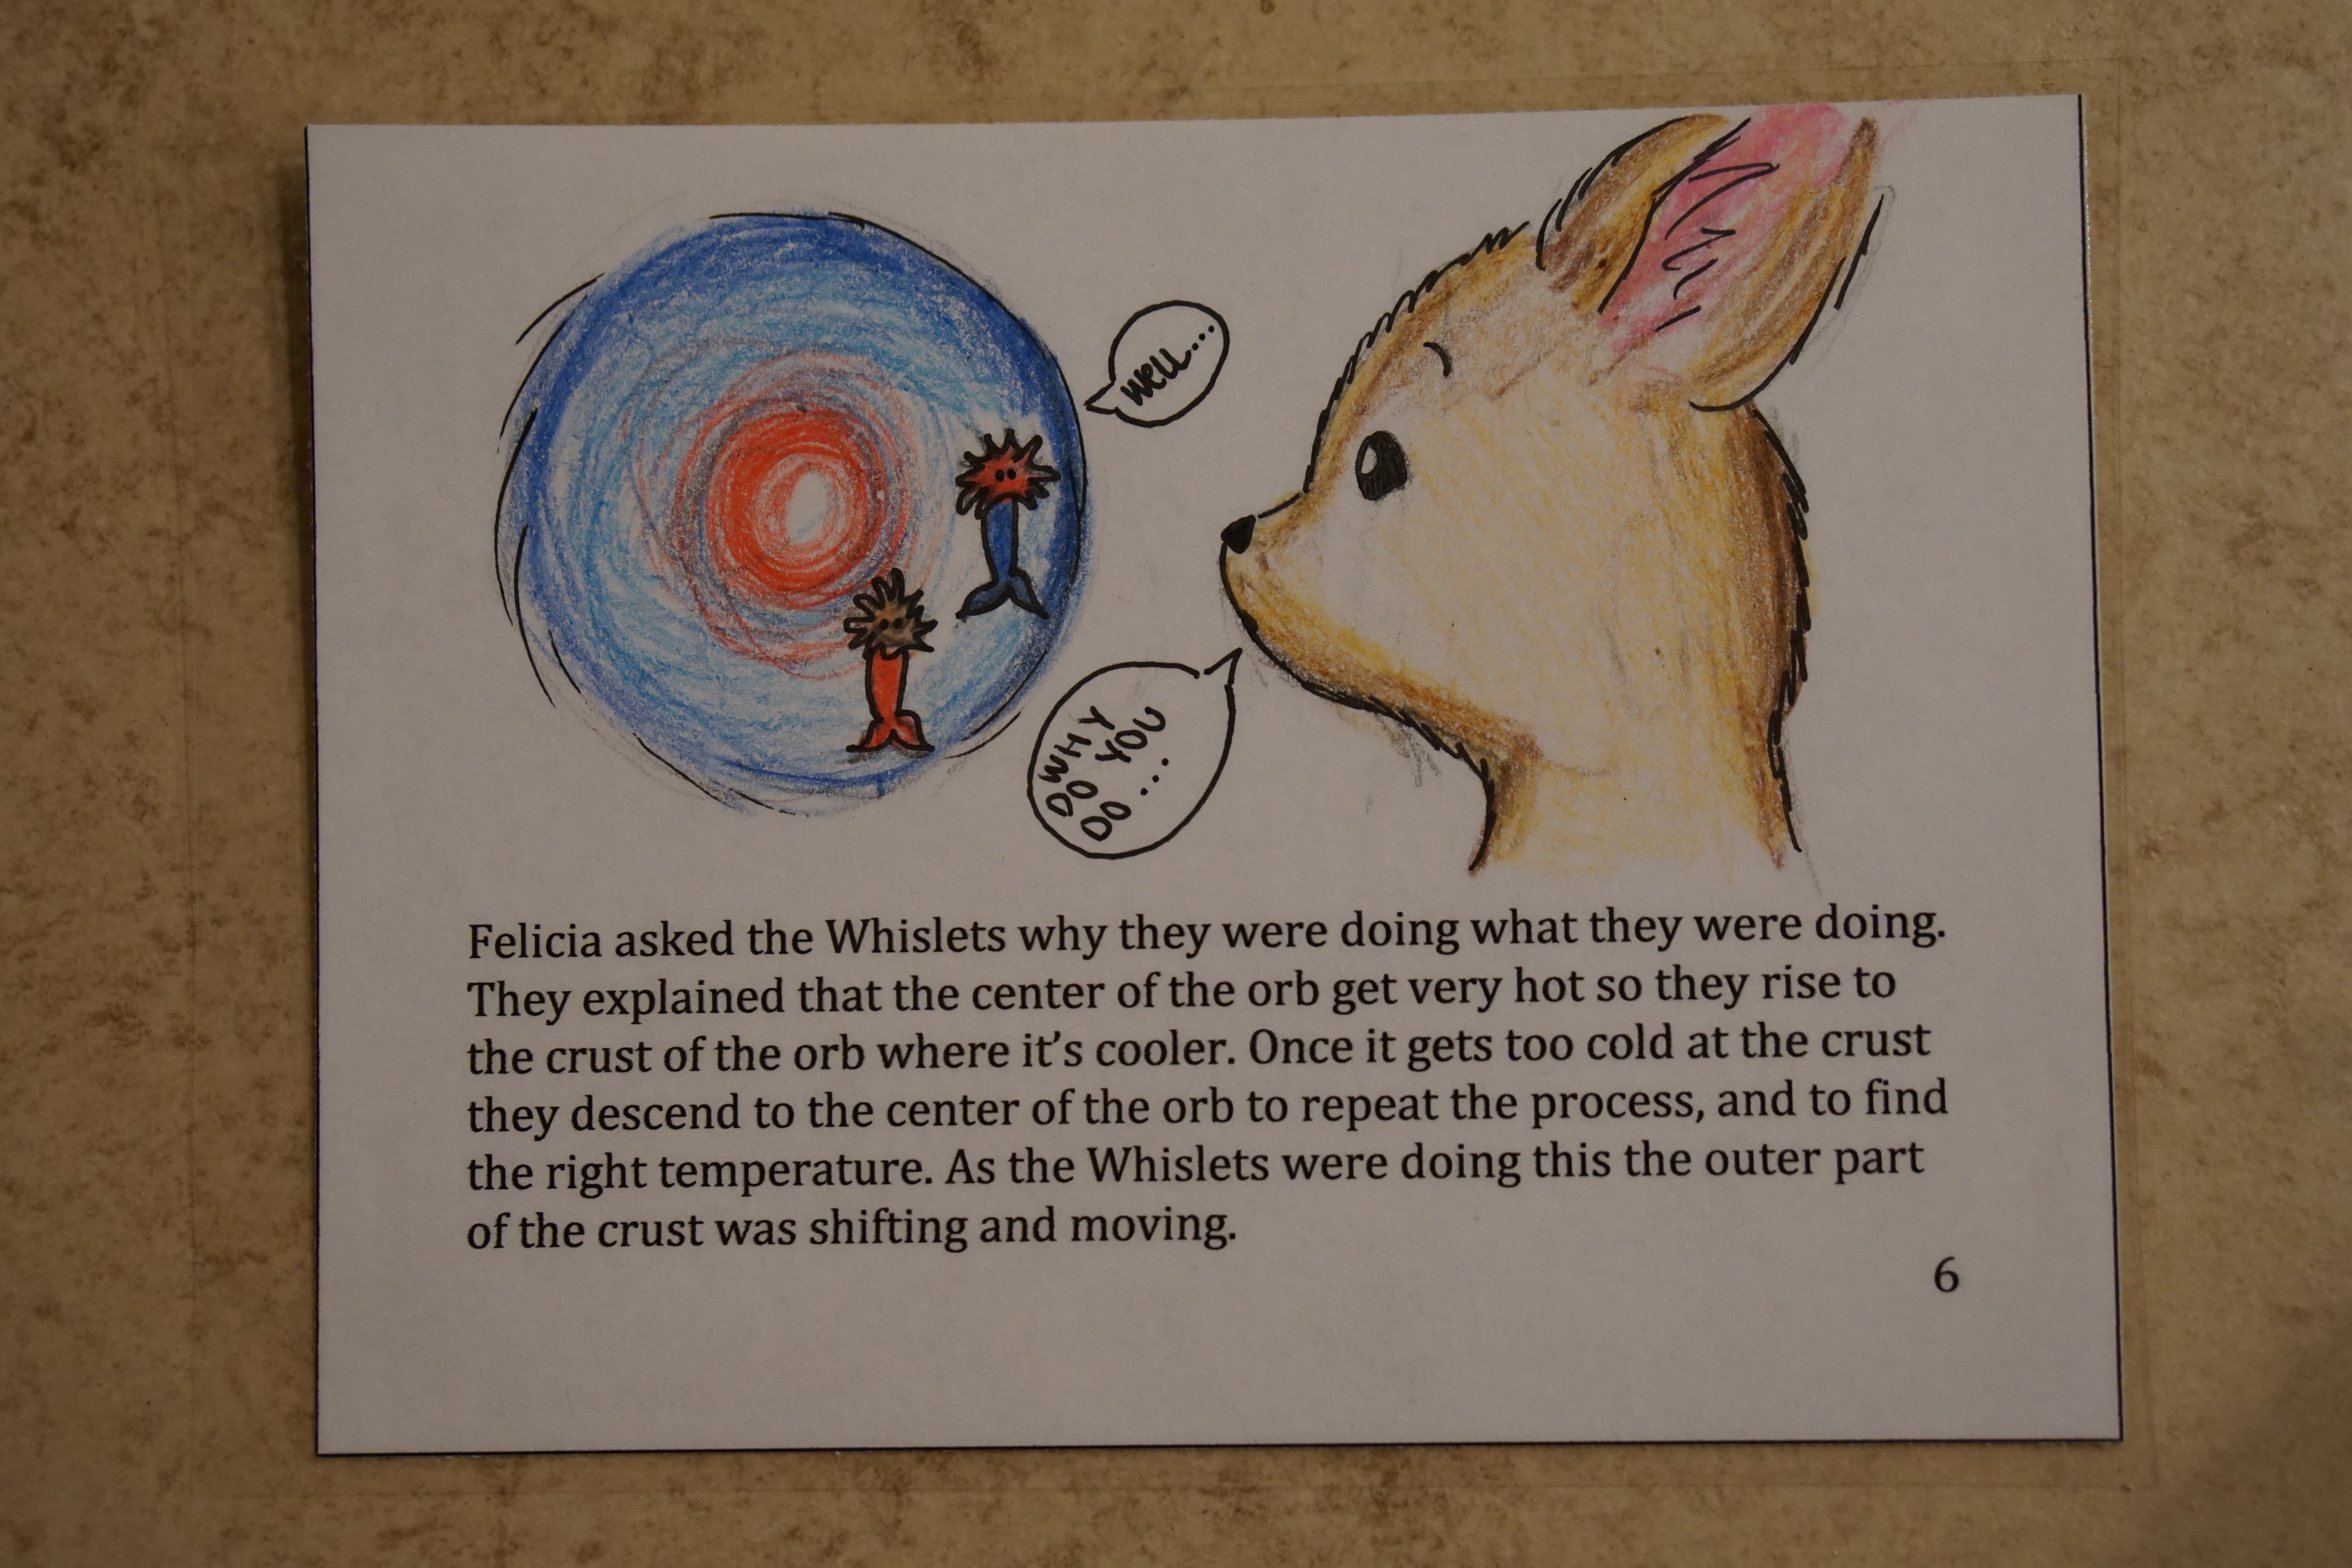 Well...
WHY
DO
YOU
DO...
Felicia asked the Whislets why they were doing what they were doing.
They explained that the center of the orb get very hot so they rise to
the crust of the orb where it's cooler. Once it gets too cold at the crust
they descend to the center of the orb to repeat the process, and to find
the right temperature. As the Whislets were doing this the outer part
of the crust was shifting and moving.
6